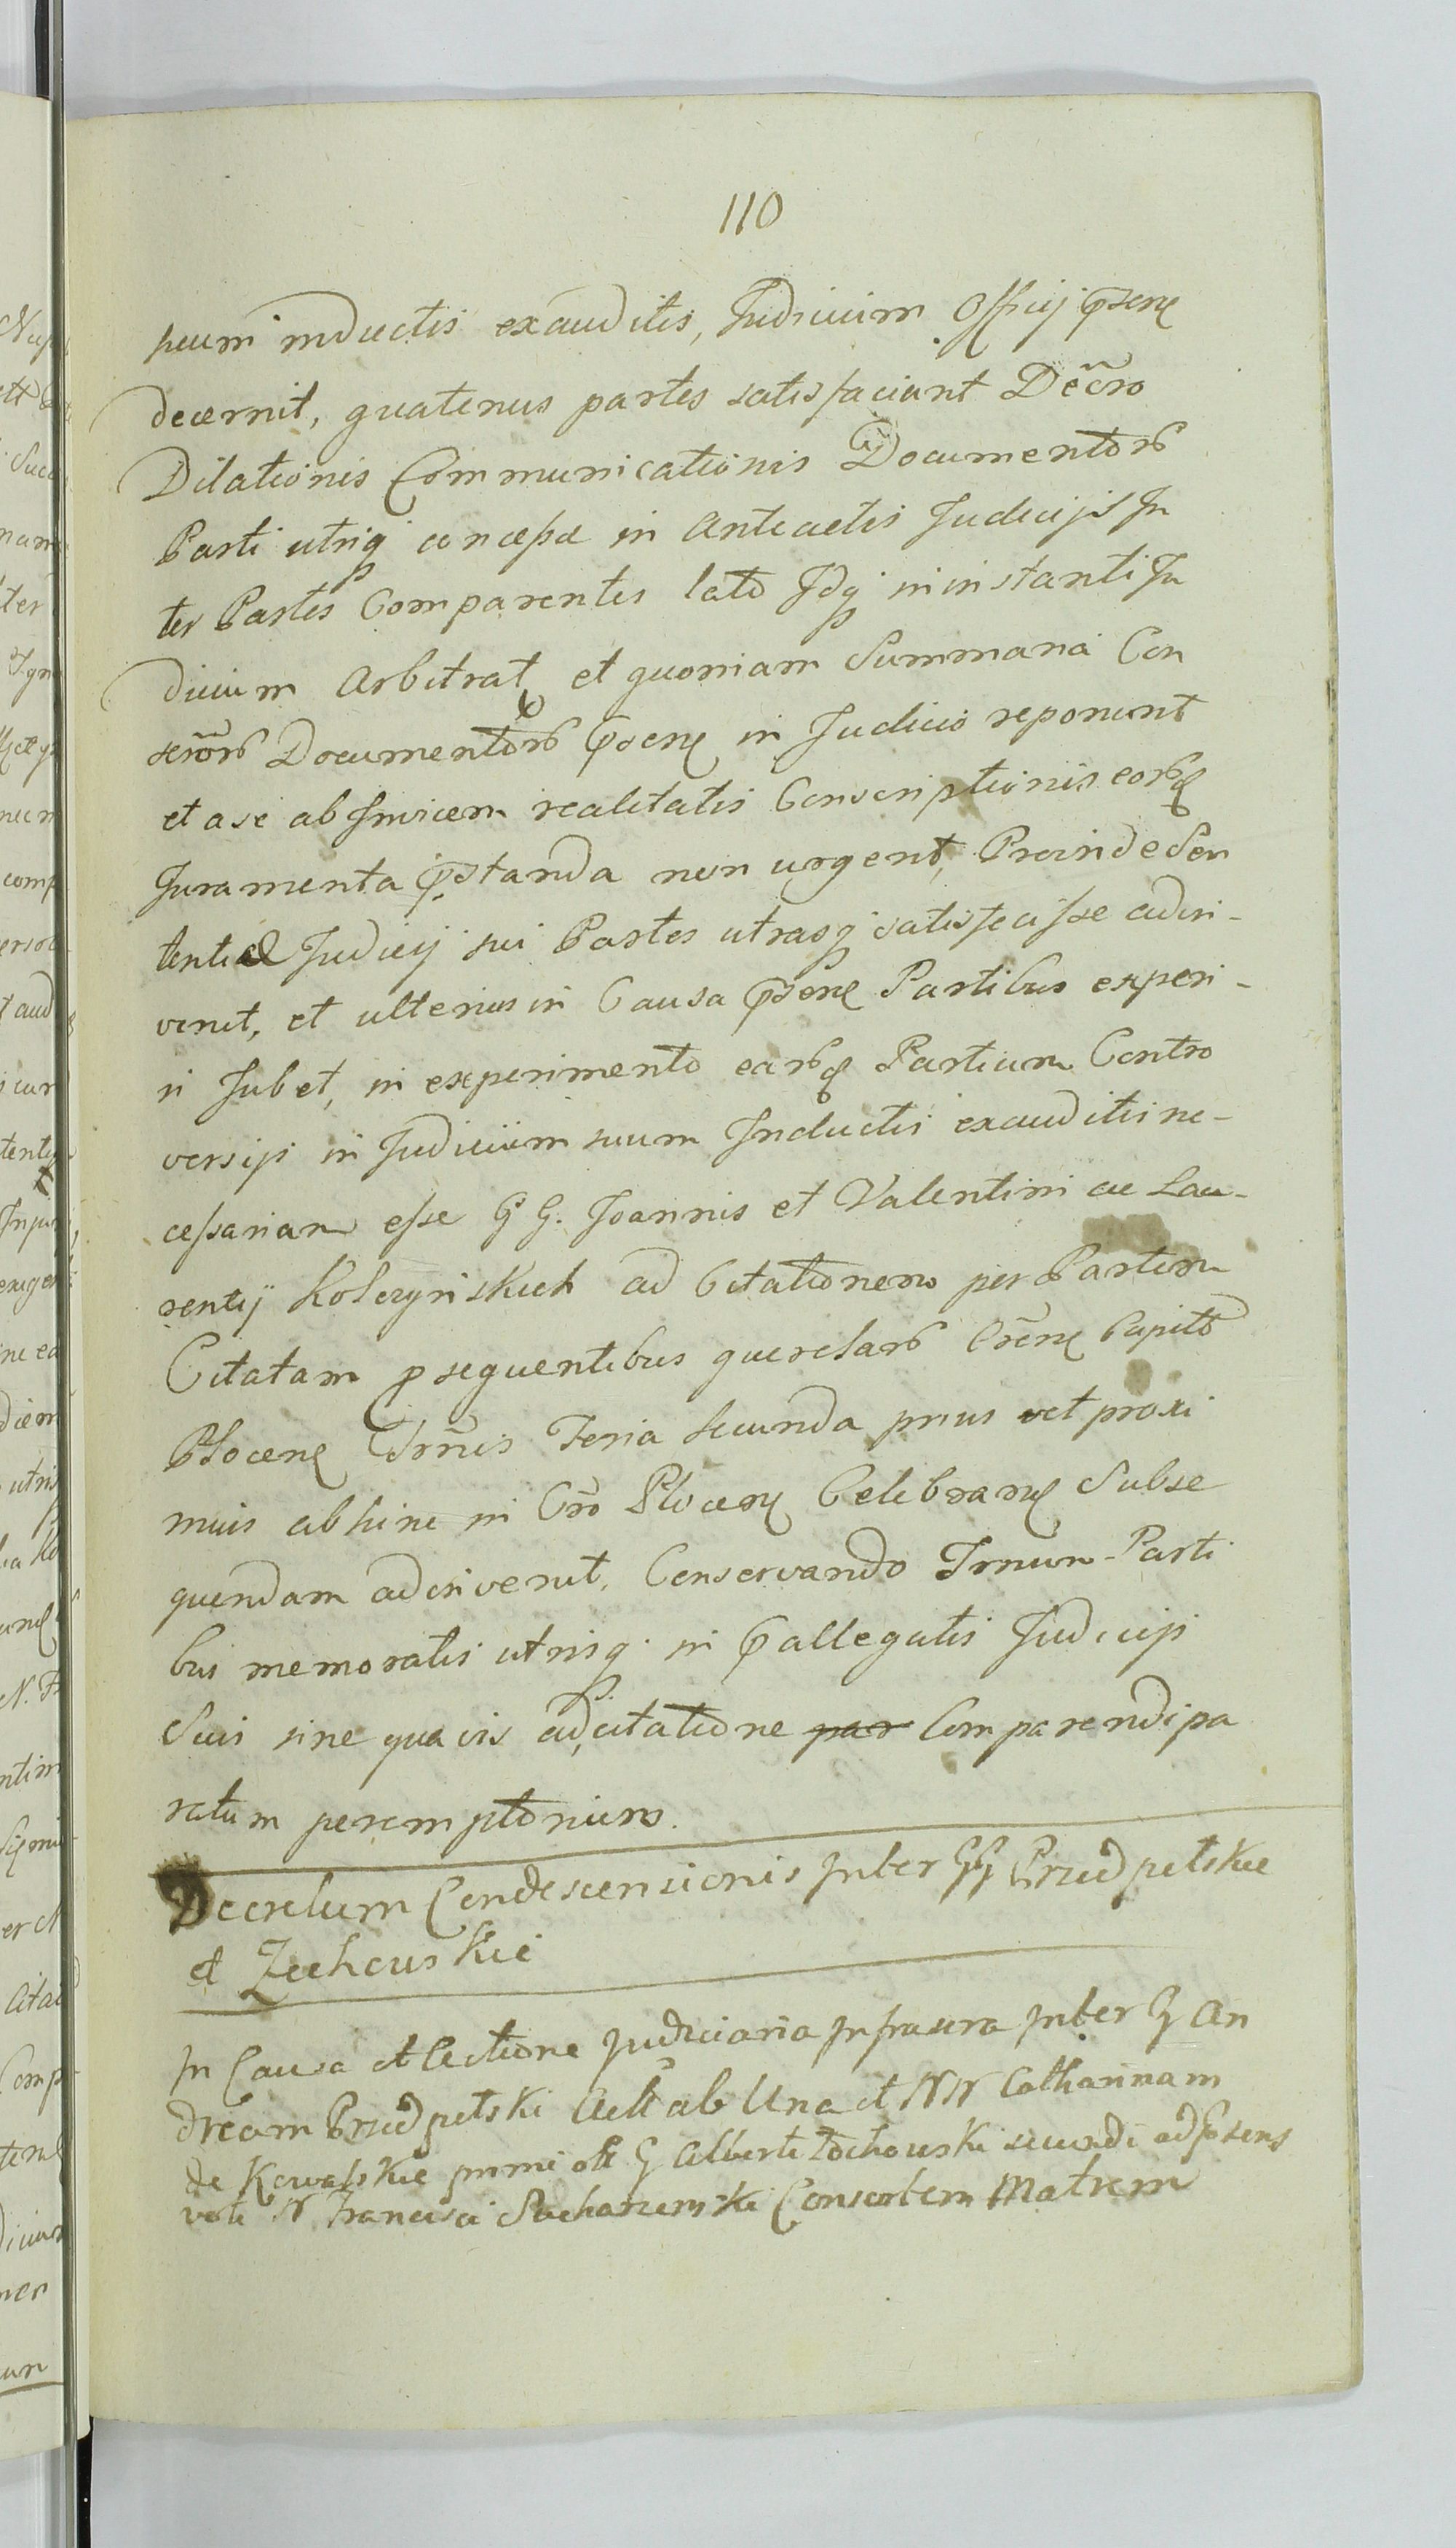 110
suum inductis exauditis, Judicium Officij p̃sens
decernit, quatenus partes satisfaciant Decro
Dilationis Communicationis Documentorb
Parti utriq concessæ in Anteactis Judicijs In
ter Partes Comparentes lato Idq in instanti Ju
dicium Arbitrat, et quoniam Summaria Con
Documentorb p̃sens in Judicio reponunt
et a se ab Invicem realitatis Conscriptionis eorb
Juramenta p̃standa non urgent, Proinde Sen
tentiæ Judicij sui Partes utrasq satisfecisse adin-
venit, et ulterius in Causa p̃senti Partibus experi-
ri Jubet, in experimento earb Partium Contro
versijs in Judicium suum Inductis exauditis ne-
cessariam esse G G. Joannis et Valentini ac Lau-
rentij Kolczynskich ad Citationem per Partem
Citatam p sequentibus querelarb Crens Capitò
Plocens Trnis Feria Secunda prius vel proxi
mius abhinc in Cro Plocens Celebrans Subse
quendam adinvenit, Conservando Trnum Parti
bus memoratis utrisq in p̃allegatis Judicijs
Suis sine quavis adcitatione par Comparendi pa
ratum peremptorium.
Decretum Condescensionis Inter GG Przedpełskie
et Zochowskie
In Causa et Actione Judiciaria Infrascra Inter G An
dream Przedpełski Act ab Una et NN Catharinam
de Kowalskie primi olt G Alberti Zochowski secundi ad p̃sens
voti N Francisci Sucharzewski Consortem Matrem